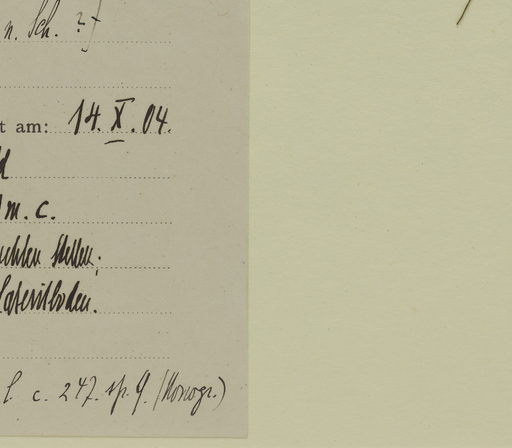 n. Sch. ?
t am: 14. X. 04.
d
m. c.
uchten Stellen,
Lateritboden.
l. c. 247. sp. 9. (Monogr.)